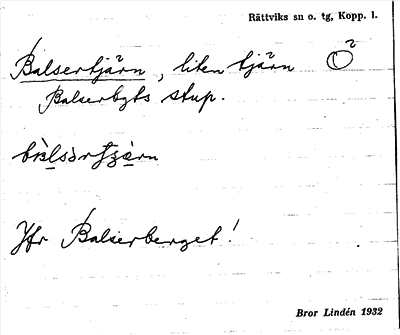 Rättviks sn o. tg, Kopp. l.
Balsertjärn, liten tjärn O²
Balserbyts stup.
Jfr Balserberget!
Bror Lindén 1932